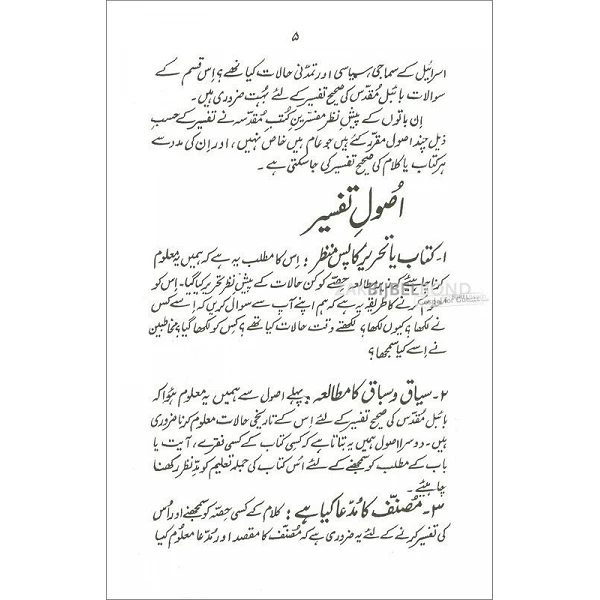 ۵
اسرائیل کے سماجی، سیاسی اور تمدنی حالات کیا تھے؟ اِس قسم کے
سوالات بائبل مُقدّس کی صحیح تفسیر کے لئے بہُت ضروری ہیں۔
اِن باتوں کے پیشِ نظر مفسّرینِ کُتبِ مُقدّسہ نے تفسیر کے حسبِ
ذیل چند اصول مقرر کئے ہیں جو عام ہیں خاص نہیں، اور اِن کی مدد سے
ہر کتاب یا کلام کی صحیح تفسیر کی جا سکتی ہے۔
اُصولِ تفسیر
۱۔ کتاب یا تحریر کا پس منظر: اِس کا مطلب یہ ہے کہ ہمیں یہ معلوم
کرنا چاہیئے کہ زیرِ مطالعہ حِصّے کو کن حالات کے پیشِ نظر تحریر کیا گیا۔ اِس کو
کرنے کا طریقہ یہ ہے کہ ہم اپنے آپ سے سوال کریں کہ اِسے کِس
نے لکھا؟ کیوں لکھا؟ لکھتے وقت حالات کیا تھے؟ کِس کو لکھا گیا؟ مخاطبین
نے اِسے کیا سمجھا؟
BIJBELFOND
۲۔ سیاق و سباق کا مطالعہ: پہلے اصول سے ہمیں یہ معلوم ہُوا کہ
بائبل مُقدّس کی صحیح تفسیر کے لئے اِس کے تاریخی حالات معلوم کرنا ضروری
ہیں۔ دوسرا اصول ہمیں یہ بتاتا ہے کہ کسی کتاب کے کسی فِقرے، آیت یا
باب کے مطلب کو سمجھنے کے لئے اُس کتاب کی جُملہ تعلیم کو مدِّ نظر رکھنا
چاہیئے۔
۳۔ مُصنّف کا مُدّعا کیا ہے: کلام کے کسی حِصّہ کو سمجھنے اور اُس
کی تفسیر کرنے کے لئے یہ ضروری ہے کہ مُصنّف کا مقصد اور مُدّعا معلوم کیا